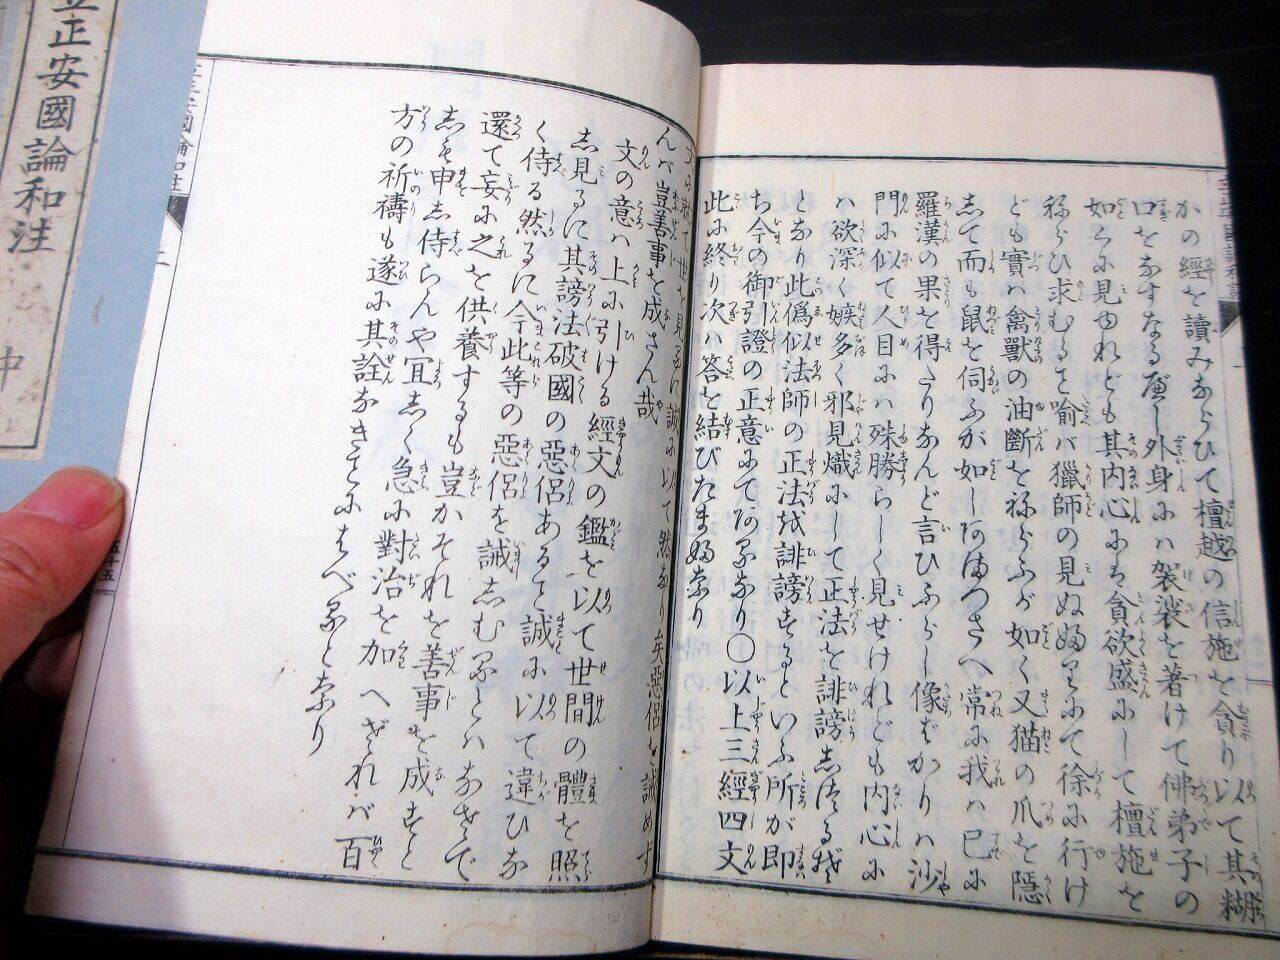 かの經を讀みならひて檀越の信施を貪り以て其糊
口をなすなる可し外身には袈裟を著けて佛弟子の
如くに見ゆれども其内心には貪欲盛にして檀施を
ねらひ求むること喩バ獵師の見ぬふりにて徐に行け
ども實ハ禽獸の油斷をねらふが如く又猫の爪を隱
して而も鼠を伺ふが如しあまつさへ常に我ハ已に
羅漢の果を得たりなんど言ひふらし像ばかりハ沙
門に似て人目にハ殊勝らしく見せけれども内心に
ハ欲深く嫉多く邪見熾にして正法を誹謗し
となり此僞似法師の正法を誹謗するといふ所が即
ち今の御引證の正意にてあるなり〇以上三經四文
此に終り次ハ答を結びたまふなり
文に就て世を見るに誠に以て然なり矣惡侶を誡めず
んバ豈善事を成さん哉
文の意ハ上に引ける經文の鑑を以て世間の體を照
し見るに其謗法破國の惡侶あること誠に以て違ひな
く侍る然るに今此等の惡侶を誡しむることハなさで
還て妄に之を供養するも豈かそれを善事を成すと
しも申し侍らんや宜しく急に對治を加へざれバ百
方の祈禱も遂に其詮なきことにはべるとなり
立正安國論和註
二
立正安國論和註
一
立正安國論和注
中